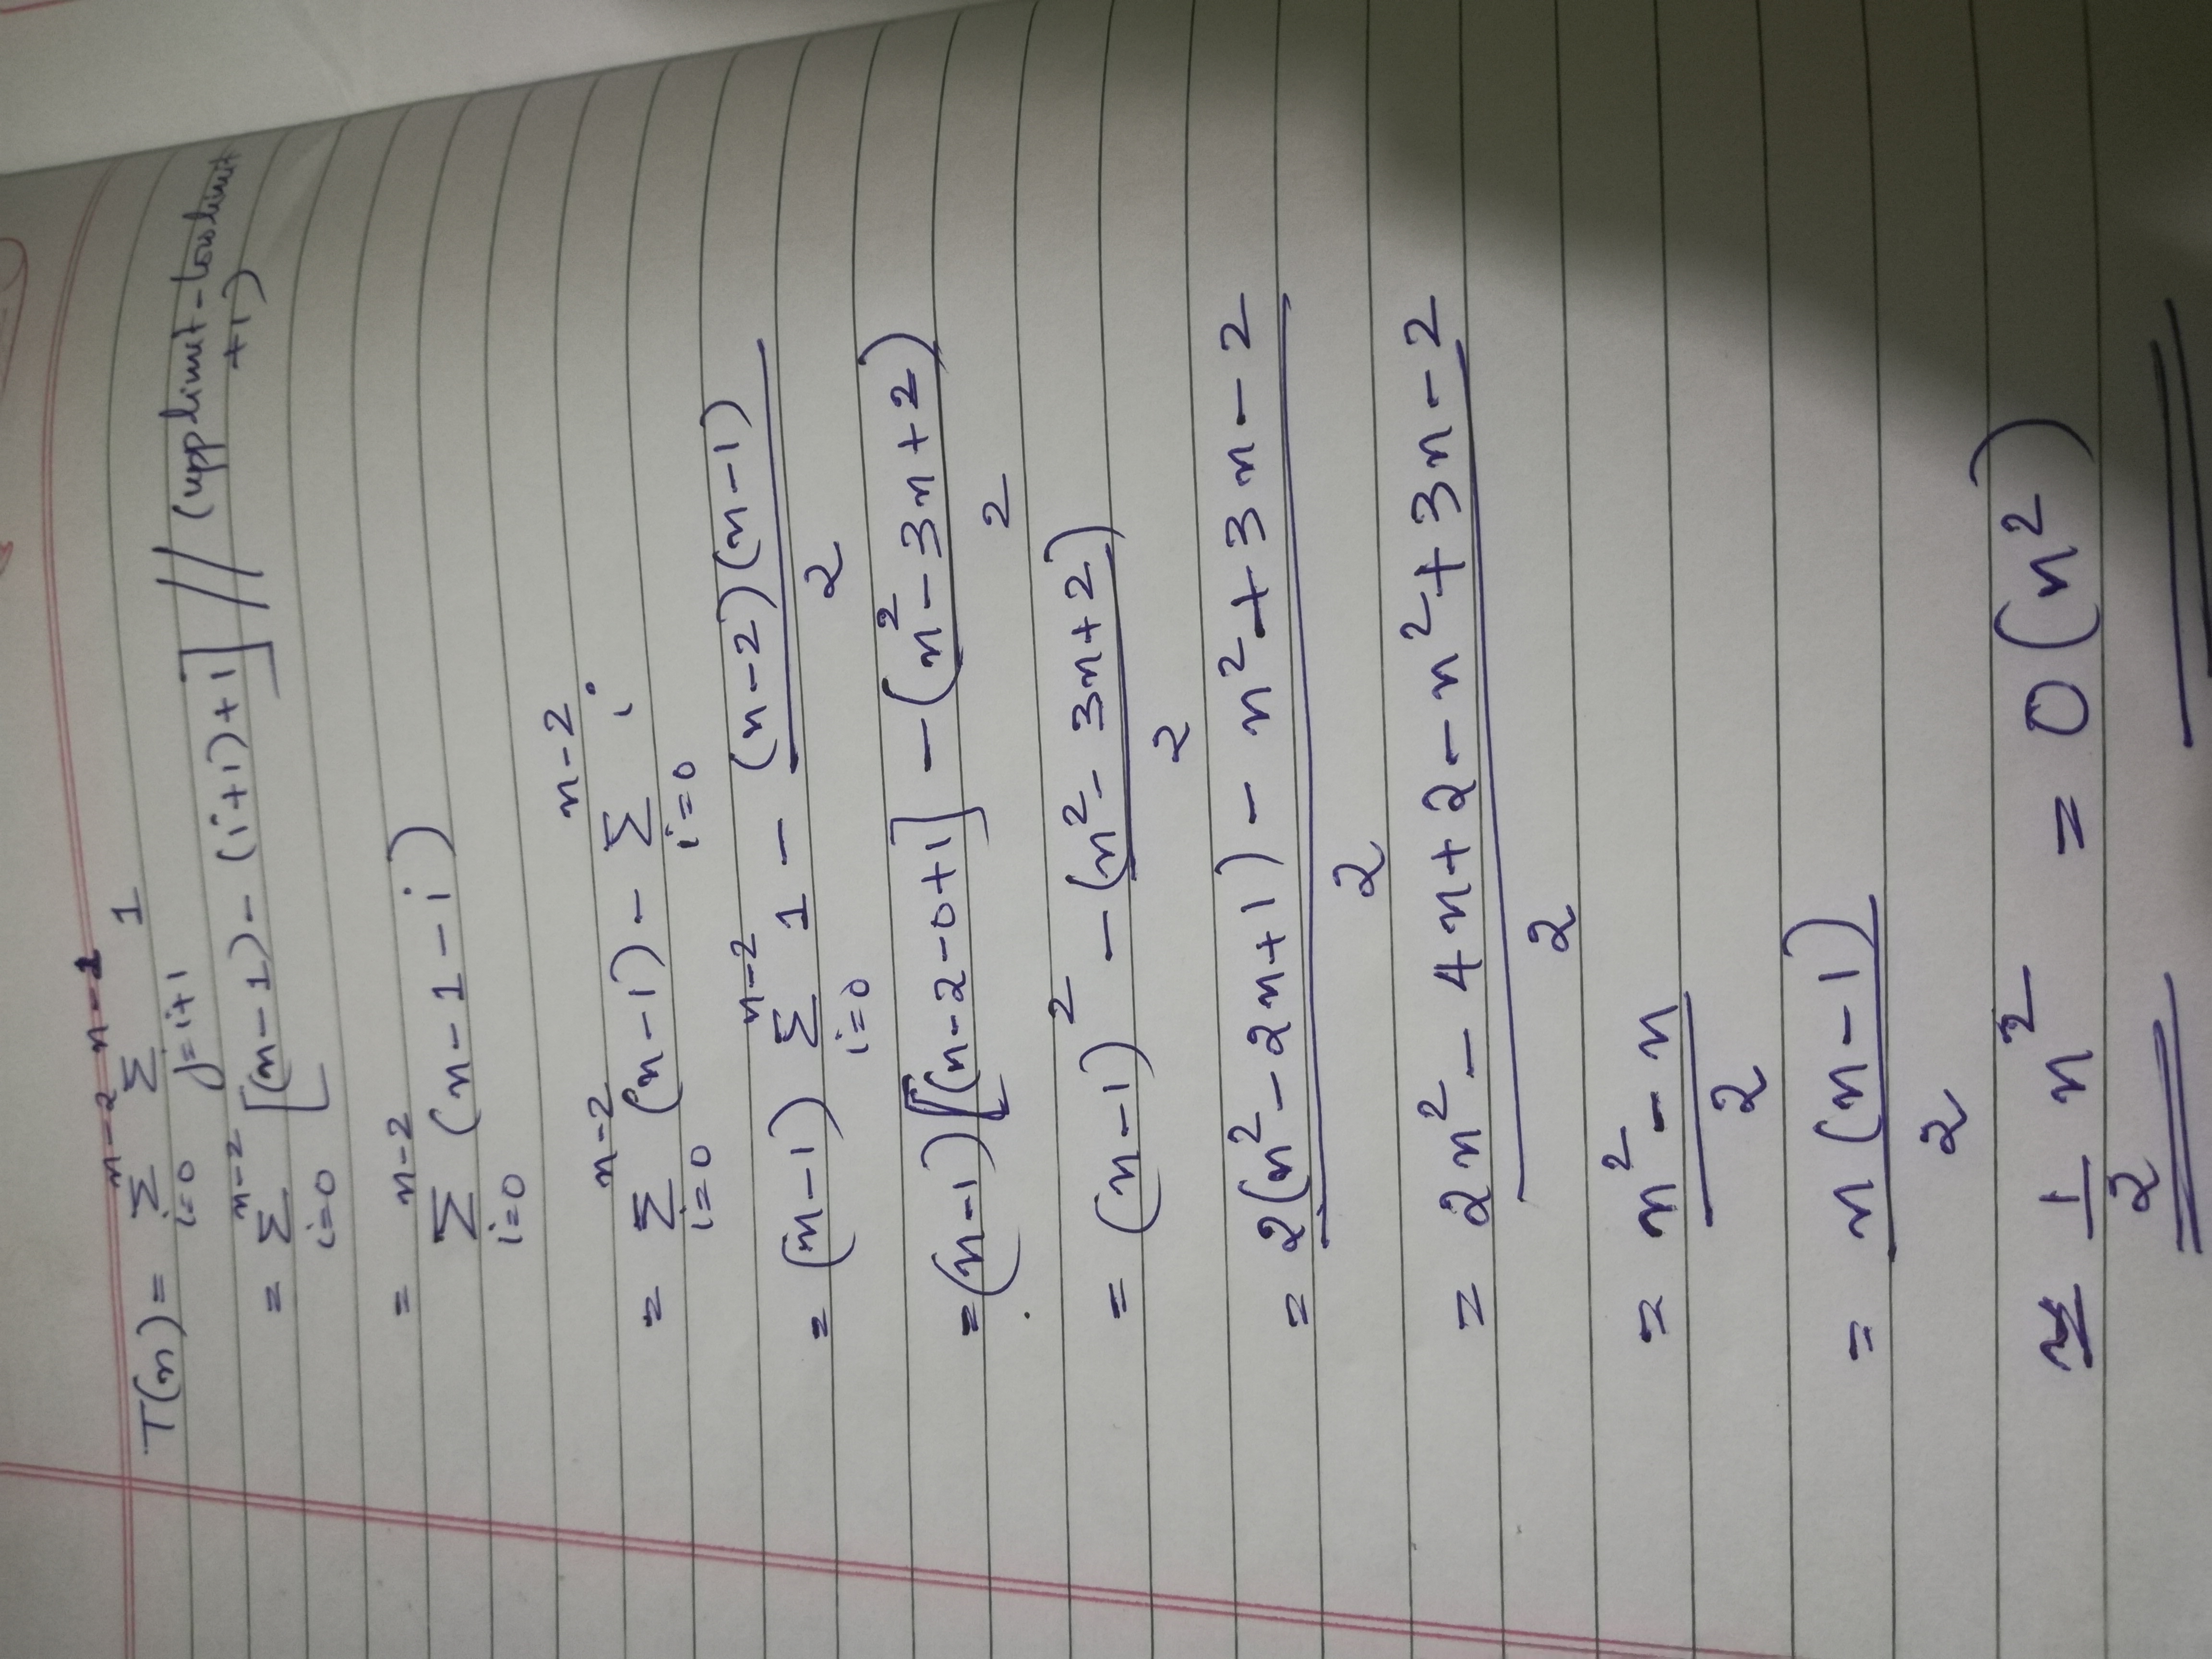 T(n) = Σ_{i=0}^{n-2} Σ_{j=i+1}^{n-1} 1
= Σ_{i=0}^{n-2} [(n-1) - (i+1) + 1] // (upp limit - low limit
+1)
= Σ_{i=0}^{n-2} (n-1-i)
= Σ_{i=0}^{n-2} (n-1) - Σ_{i=0}^{n-2} i
= (n-1) Σ_{i=0}^{n-2} 1 - (n-2)(n-1)/2
= (n-1)[(n-2-0+1] - (n²-3n+2)/2
= (n-1)² - (n²-3n+2)/2
= 2(n²-2n+1) - n²+3n-2/2
= 2n²-4n+2-n²+3n-2/2
= n²-n/2
= n(n-1)/2
≃ 1/2 n² = O(n²)